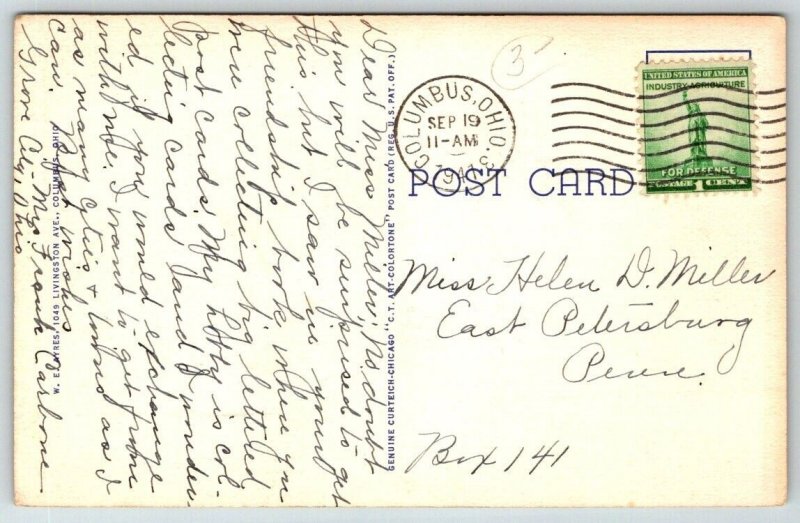 Dear Miss Miller; No doubt
you will be surprised to get
this but I saw in your
friendship book where you
collecting big lettered
Post cards. My hobby is col-
lecting cards and I wonder-
ed if you would exchange
with me. I want to get from
as many cities & towns as I
can. Best wishes
Mrs Frank
Grove City, Ohio
W. E. AYRES, 1049 LIVINGSTON AVE., COLUMBUS, OHIO
GENUINE CURTEICH-CHICAGO "C.T. ART-COLORTONE" POST CARD (REG. U.S. PAT. OFF.)
3
COLUMBUS, OHIO.
SEP 19
11-AM
1941
UNITED STATES OF AMERICA
INDUSTRY AGRICULTURE
FOR DEFENSE
POSTAGE 1 CENT
POST CARD
Miss Helen D. Miller
East Petersburg
Penn.
Box 141